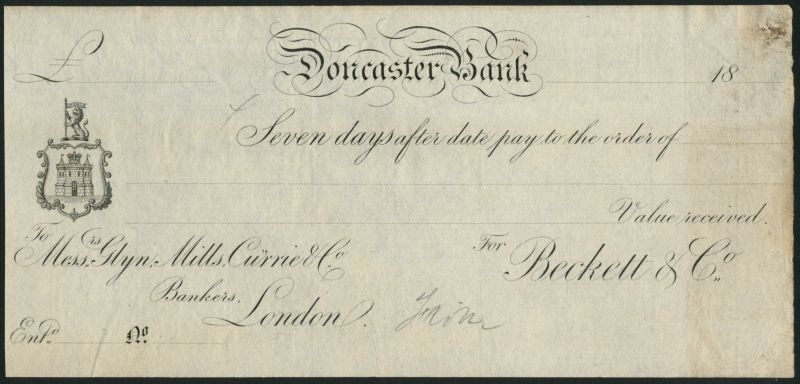 £ Doncaster Bank 18
Seven days after date pay to the order of
Value received.
To Messrs. Glyn, Mills, Currie & Co.
For Beckett & Co.
Bankers,
London.
Entd. No.